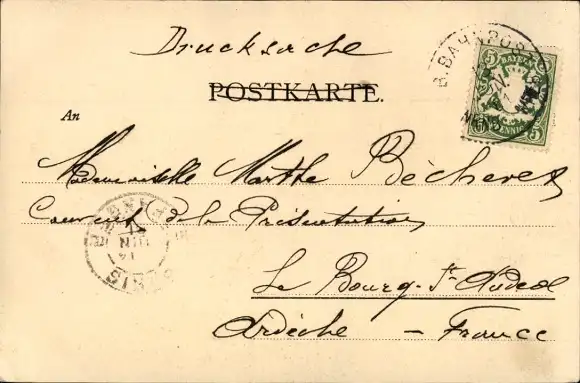 Drucksache
POSTKARTE.
An
K. BAHNPOST
BAYERN
5 5
PFENNIG
5 5
Mademoiselle Marthe Bécheret
Couvent de la Présentation
Le Bourg-St-Andéol
Ardèche — France
JUIN
14